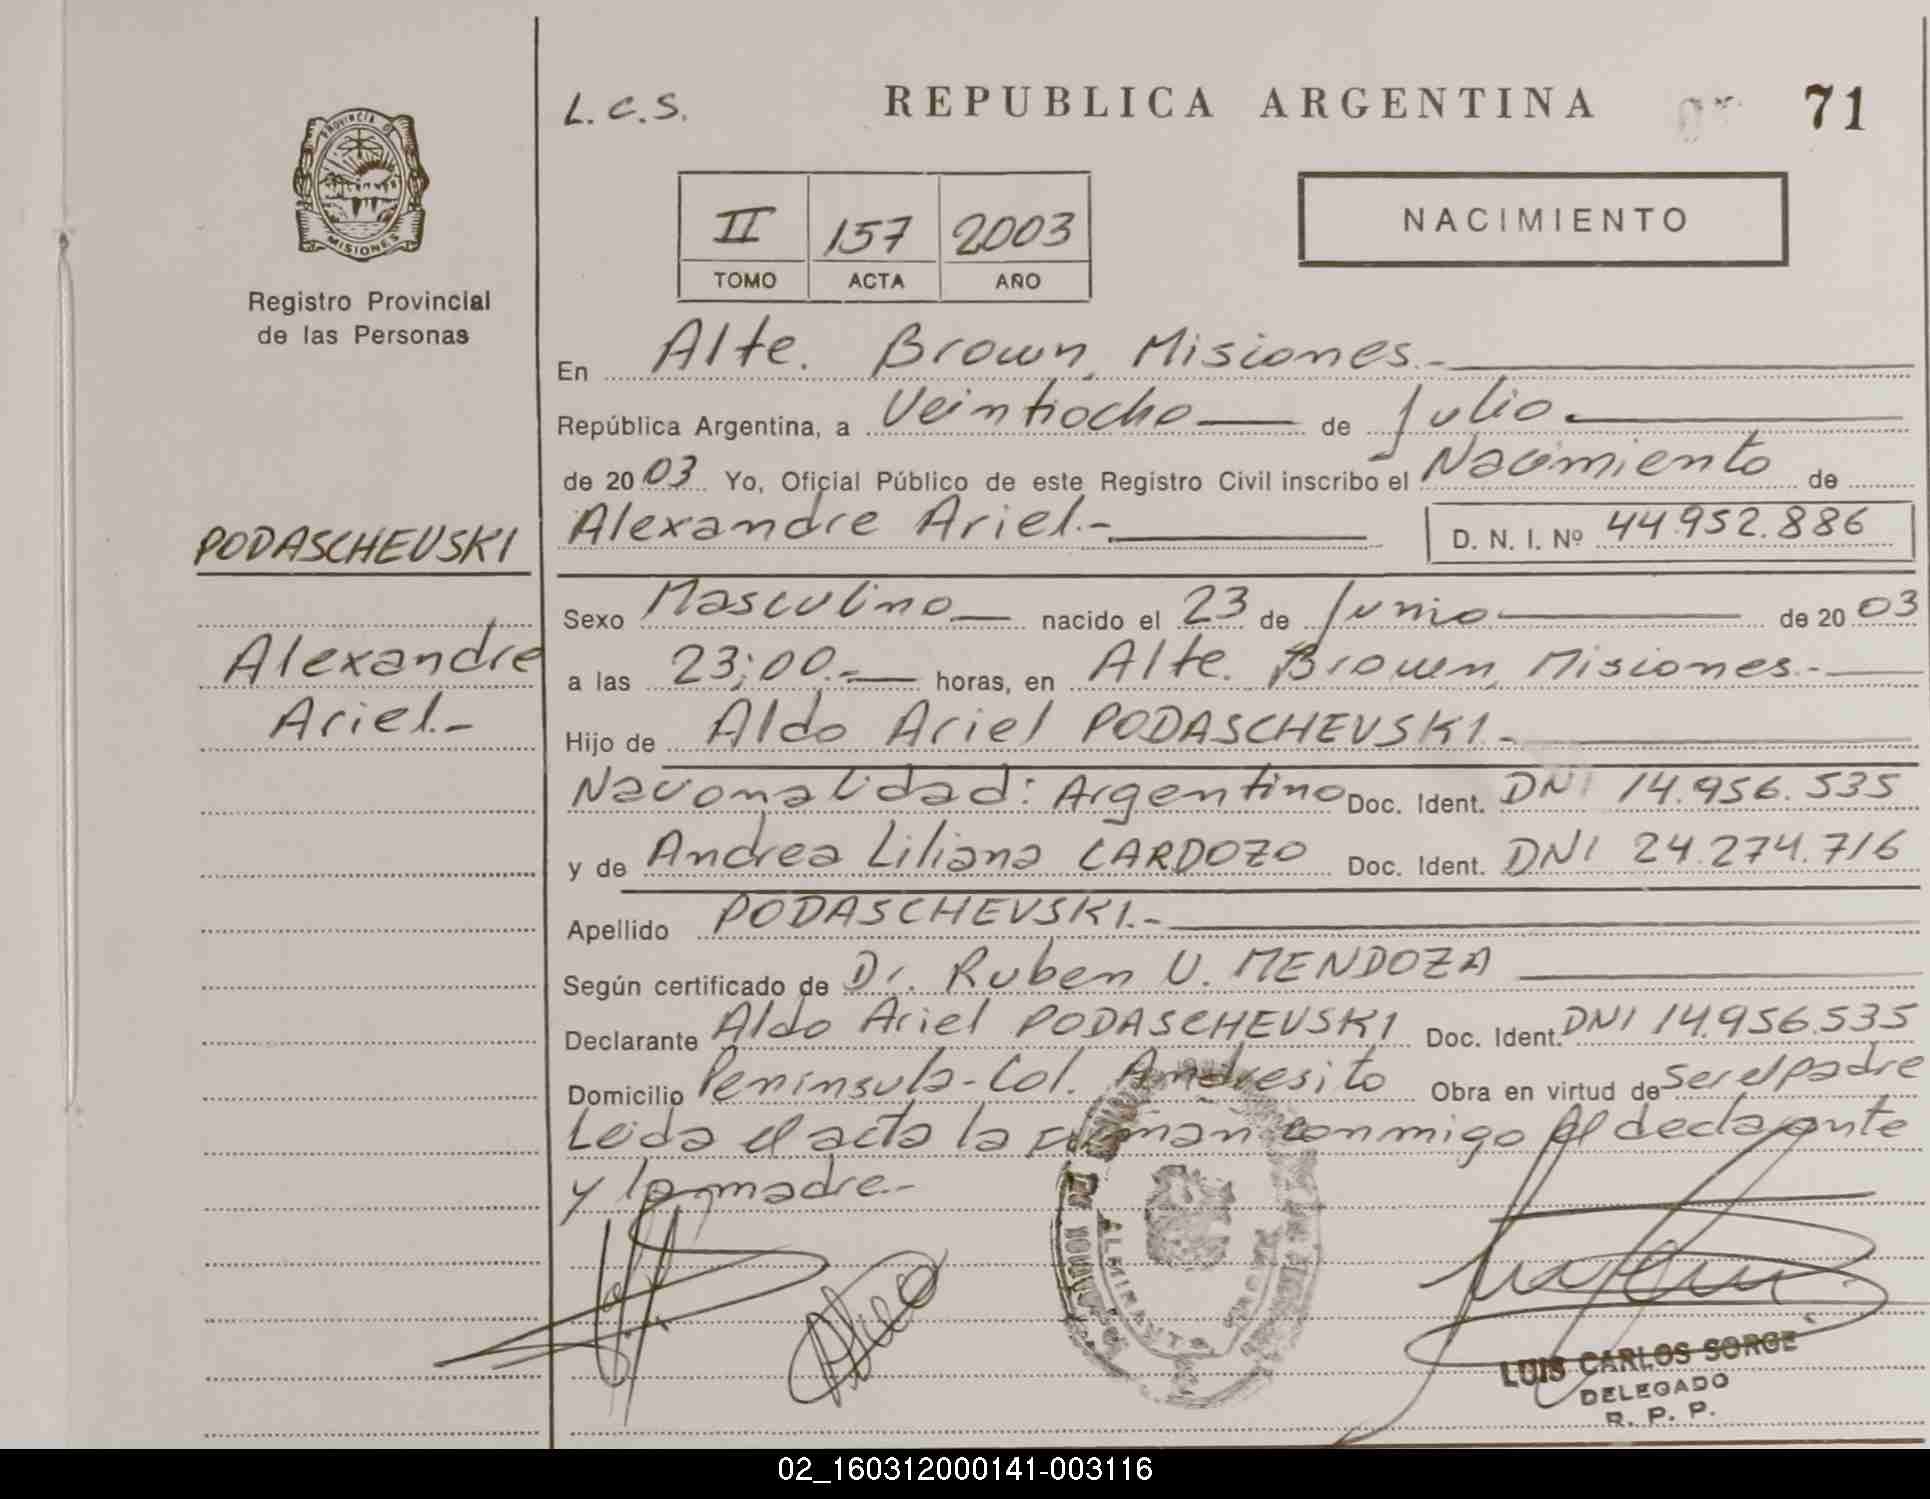 L. C. S.
REPUBLICA ARGENTINA
71
PROVINCIA DE
MISIONES
Registro Provincial
de las Personas
II 157 2003
TOMO ACTA AÑO
NACIMIENTO
En Alte. Brown, Misiones.-
República Argentina, a Veintiocho de Julio.
de 2003 Yo, Oficial Público de este Registro Civil inscribo el Nacimiento de
Alexandre Ariel.- D. N. I. Nº 44.952.886
PODASCHEVSKI
Alexandre
Ariel.-
Sexo Masculino nacido el 23 de Junio de 2003
a las 23:00.- horas, en Alte. Brown, Misiones.-
Hijo de Aldo Ariel PODASCHEVSKI.-
Nacionalidad: Argentino Doc. Ident. DNI 14.956.535
y de Andrea Liliana CARDOZO Doc. Ident. DNI 24.274.716
Apellido PODASCHEVSKI.-
Según certificado de Dr. Ruben U. MENDOZA
Declarante Aldo Ariel PODASCHEVSKI Doc. Ident. DNI 14.956.535
Domicilio Peninsula-Col. Andresito Obra en virtud de ser el padre
Leida el acta la firman conmigo el declarante
y la madre.-
ALMIRANTE BROWN
LUIS CARLOS SORGE
DELEGADO
R. P. P.
02_160312000141-003116